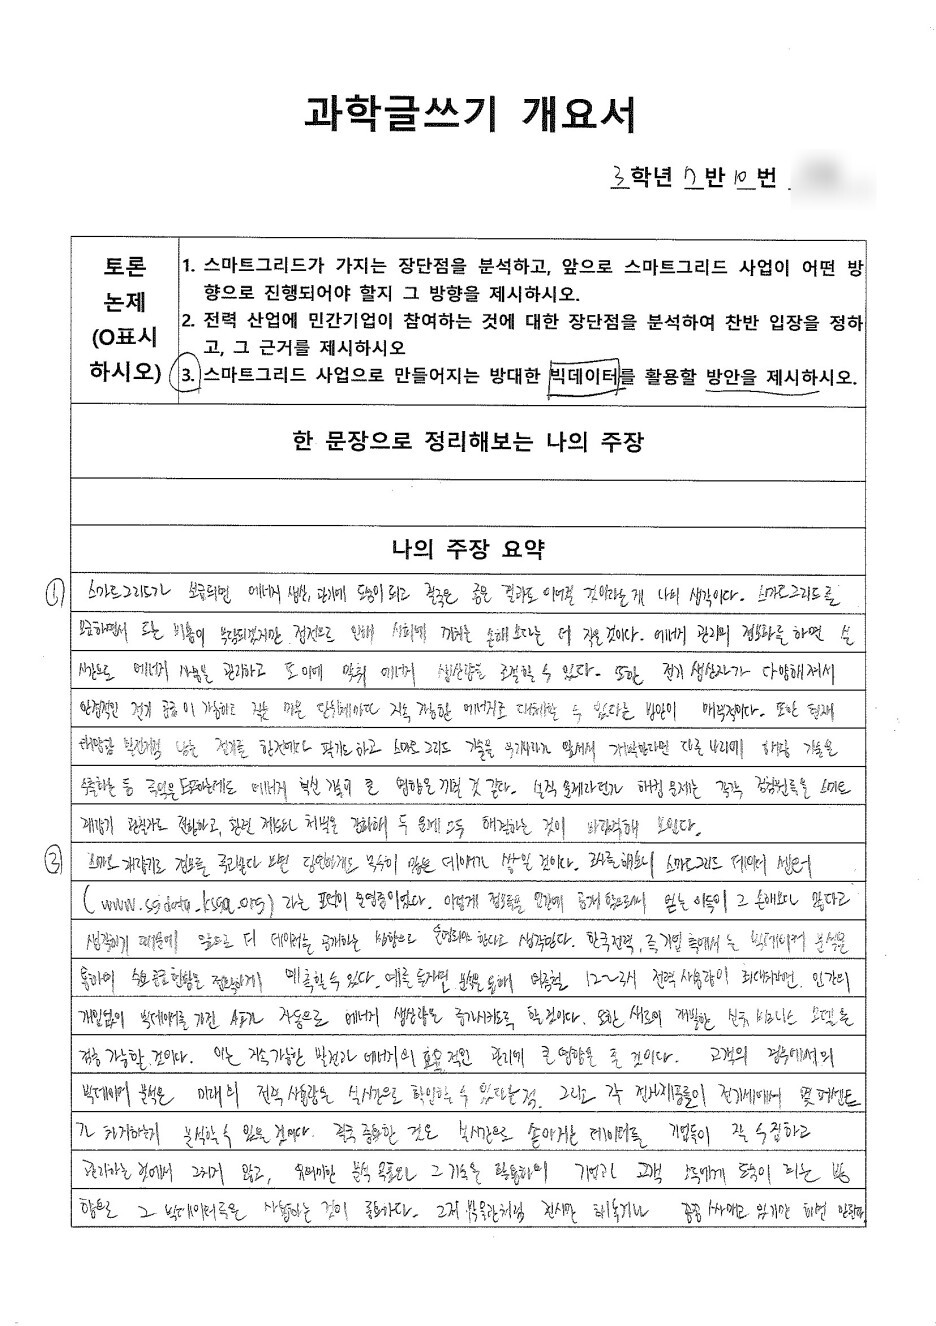 과학글쓰기 개요서
3학년 7반 10번
토론
논제
(O표시
하시오)
1. 스마트그리드가 가지는 장단점을 분석하고, 앞으로 스마트그리드 사업이 어떤 방
향으로 진행되어야 할지 그 방향을 제시하시오.
2. 전력 산업에 민간기업이 참여하는 것에 대한 장단점을 분석하여 찬반 입장을 정하
고, 그 근거를 제시하시오
3. 스마트그리드 사업으로 만들어지는 방대한 빅데이터를 활용할 방안을 제시하시오.
한 문장으로 정리해보는 나의 주장
나의 주장 요약
① 스마트그리드가 보급되면 에너지 생산, 관리에 도움이 되고 결국은 좋은 결과로 이어질 것이라는게 나의 생각이다. 스마트그리드를
보급하면서 드는 비용이 부담되겠지만 정전으로 인해 사회에 끼치는 손해보다는 더 작은 것이다. 에너지 관리의 정보화를 하면 실
시간으로 에너지 사용을 관리하고 또 이에 맞춰 에너지 생산량을 조절할 수 있다. 또한 전기 생산자가 다양해져서
안정적인 전기 공급이 가능하고 작은 마을 단위에마다 지속 가능한 에너지로 대체할 수 있다는 방안이 매력적이다. 또한 현재
태양광 발전처럼 남는 전기를 한전에다 팔기도 하고 스마트 그리드 기술을 우리나라가 앞서서 개발한다면 다른 나라에 해당 기술을
수출하는 등 에너지 혁신 큰 영향을 끼칠 것 같다. 실직 문제라던가 해킹 문제는 각각 검침원들을 스마트
계량기 관리자로 전환하고, 관련 제도와 처벌을 강화해 두 문제 모두 해결하는 것이 바람직해 보인다.
③ 스마트 계량기로 정보를 축적한다 하면 당연하게도 무수히 많은 데이터가 쌓일 것이다. 조사를 해보니 스마트그리드 데이터 센터
라는 포털이 운영중이었다. 이렇게 정보들을 민간에 공개함으로써 얻는 이득이 그 손해보다 많다고
생각하기 때문에 앞으로 더 데이터를 공개하는 방향으로 운영되야 한다고 생각한다. 한국전력, 즉 기업 측에서는 빅데이터 분석을
통하여 수요 공급 현황을 정확하게 예측할 수 있다. 예를 들자면 분석을 통해 여름철 12~2시 전력 사용량이 최대라면, 인간의
개입없이 빅데이터를 가진 AI가 자동으로 에너지 생산량을 증가시키도록 할 것이다. 또한 새로이 개발한 신규 비즈니스 모델을
검증 가능할 것이다. 이는 지속가능한 발전과 에너지의 효율적인 관리에 큰 영향을 줄 것이다. 고객의 경우에서의
빅데이터 분석은 미래의 전력 사용량을 실시간으로 확인할 수 있다는 점, 그리고 각 전자제품들이 전기세에서 몇 퍼센트
가 차지하는지 분석할 수 있을 것이다. 결국 중요한 것은 실시간으로 쏟아지는 데이터를 기업들이 잘 수집하고
관리하는 것에서 그치지 않고, 유의미한 분석 목표와 그 기술을 활용하여 기업과 고객 모두에게 도움이 되는 방
향으로 그 빅데이터들을 사용하는 것이 중요하다. 그저 박물관처럼 전시만 해놓거나